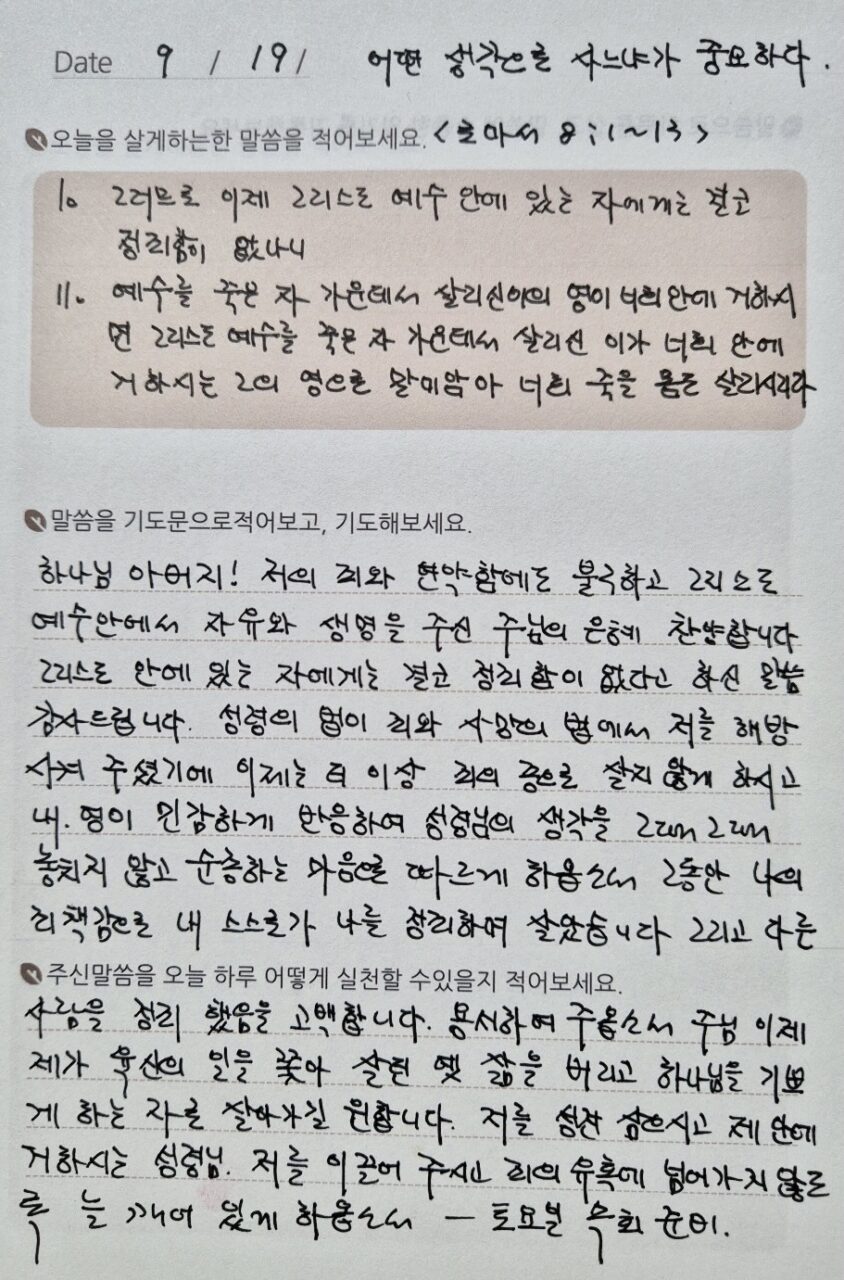 Date 9 / 19 / 어떤 생각으로 사느냐가 중요하다.
오늘을 살게하는한 말씀을 적어보세요. <로마서 8;1~13>
1. 그러므로 이제 그리스도 예수 안에 있는 자에게는 결코
정죄함이 없나니
11. 예수를 죽은 자 가운데서 살리신이의 영이 너희안에 거하시
면 그리스도 예수를 죽은 자 가운데서 살리신 이가 너희 안에
거하시는 그의 영으로 말미암아 너희 죽을 몸도 살리시리라
말씀을 기도문으로적어보고, 기도해보세요.
하나님 아버지! 저의 죄와 연약함에도 불구하고 그리스도
예수안에서 자유와 생명을 주신 주님의 은혜 찬양합니다
그리스도 안에 있는 자에게는 결코 정죄함이 없다고 하신 말씀
감사드립니다. 성령의 법이 죄와 사망의 법에서 저를 해방
시켜 주셨기에 이제는 더 이상 죄의 종으로 살지 않게 하시고
내. 영이 민감하게 반응하여 성령님의 생각을 그때그때
놓치지 않고 순종하는 마음으로 따르게 하옵소서 그동안 나의
죄책감으로 내 스스로가 나를 정죄하며 살았습니다 그리고 다른
주신말씀을 오늘 하루 어떻게 실천할 수있을지 적어보세요.
사람을 정죄 했음을 고백합니다. 용서하여 주옵소서 주님 이제
제가 육신의 일을 쫓아 살던 옛 삶을 버리고 하나님을 기쁘
게 하는 자로 살아가길 원합니다. 저를 성전 삼으시고 제 안에
거하시는 성령님. 저를 이끌어 주시고 죄의 유혹에 넘어가지 않도
록 늘 깨어 있게 하옵소서 — 토요일 수회 준비.